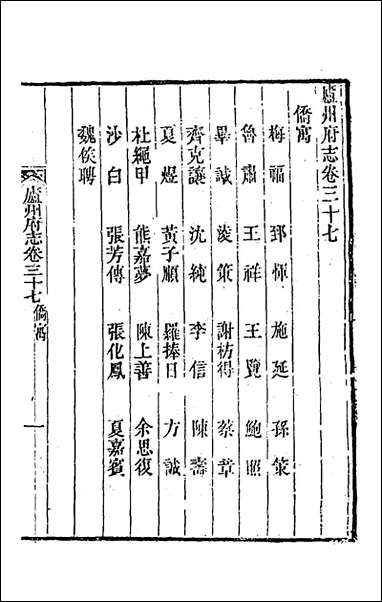 廬州府志卷三十七
僑寓
梅福 郅惲 施延 孫策
魯肅 王祥 王覽 鮑照
畢諴 淩策 謝枋得 蔡章
齊克讓 沈純 李信 陳濤
夏煜 黃子順 羅捧日 方誠
杜繩甲 熊嘉夢 陳上善 余思復
沙白 張芳傳 張化鳳 夏嘉賓
魏俟聘
廬州府志卷三十七 僑寓 一